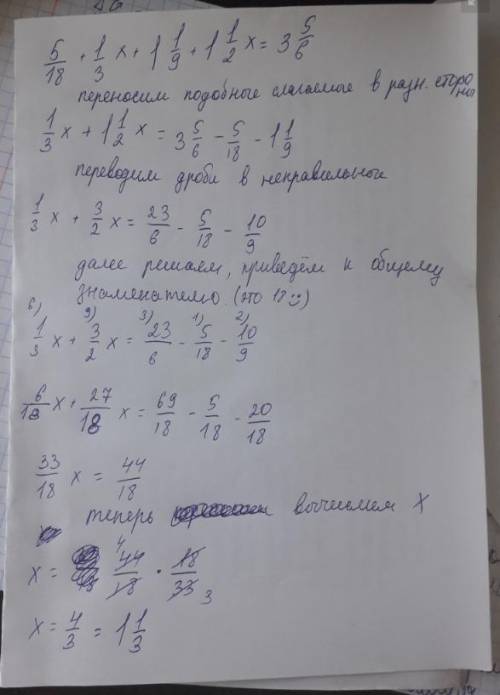 5/18 + 1/3 x + 1 1/9 + 1 1/2 x = 3 5/6
переносим подобные слагаемые в разн. стороны
1/3 x + 1 1/2 x = 3 5/6 - 5/18 - 1 1/9
переводим дроби в неправильной
1/3 x + 3/2 x = 23/6 - 5/18 - 10/9
далее решаем, приведём к общему
знаменателю. (это 18☺)
6) 9) 3) 1) 2)
1/3 x + 3/2 x = 23/6 - 5/18 - 10/9
6/18 x + 27/18 x = 69/18 - 5/18 - 20/18
33/18 x = 44/18
теперь вычислим X
x = 44/18 · 18/33
4 3
x = 4/3 = 1 1/3